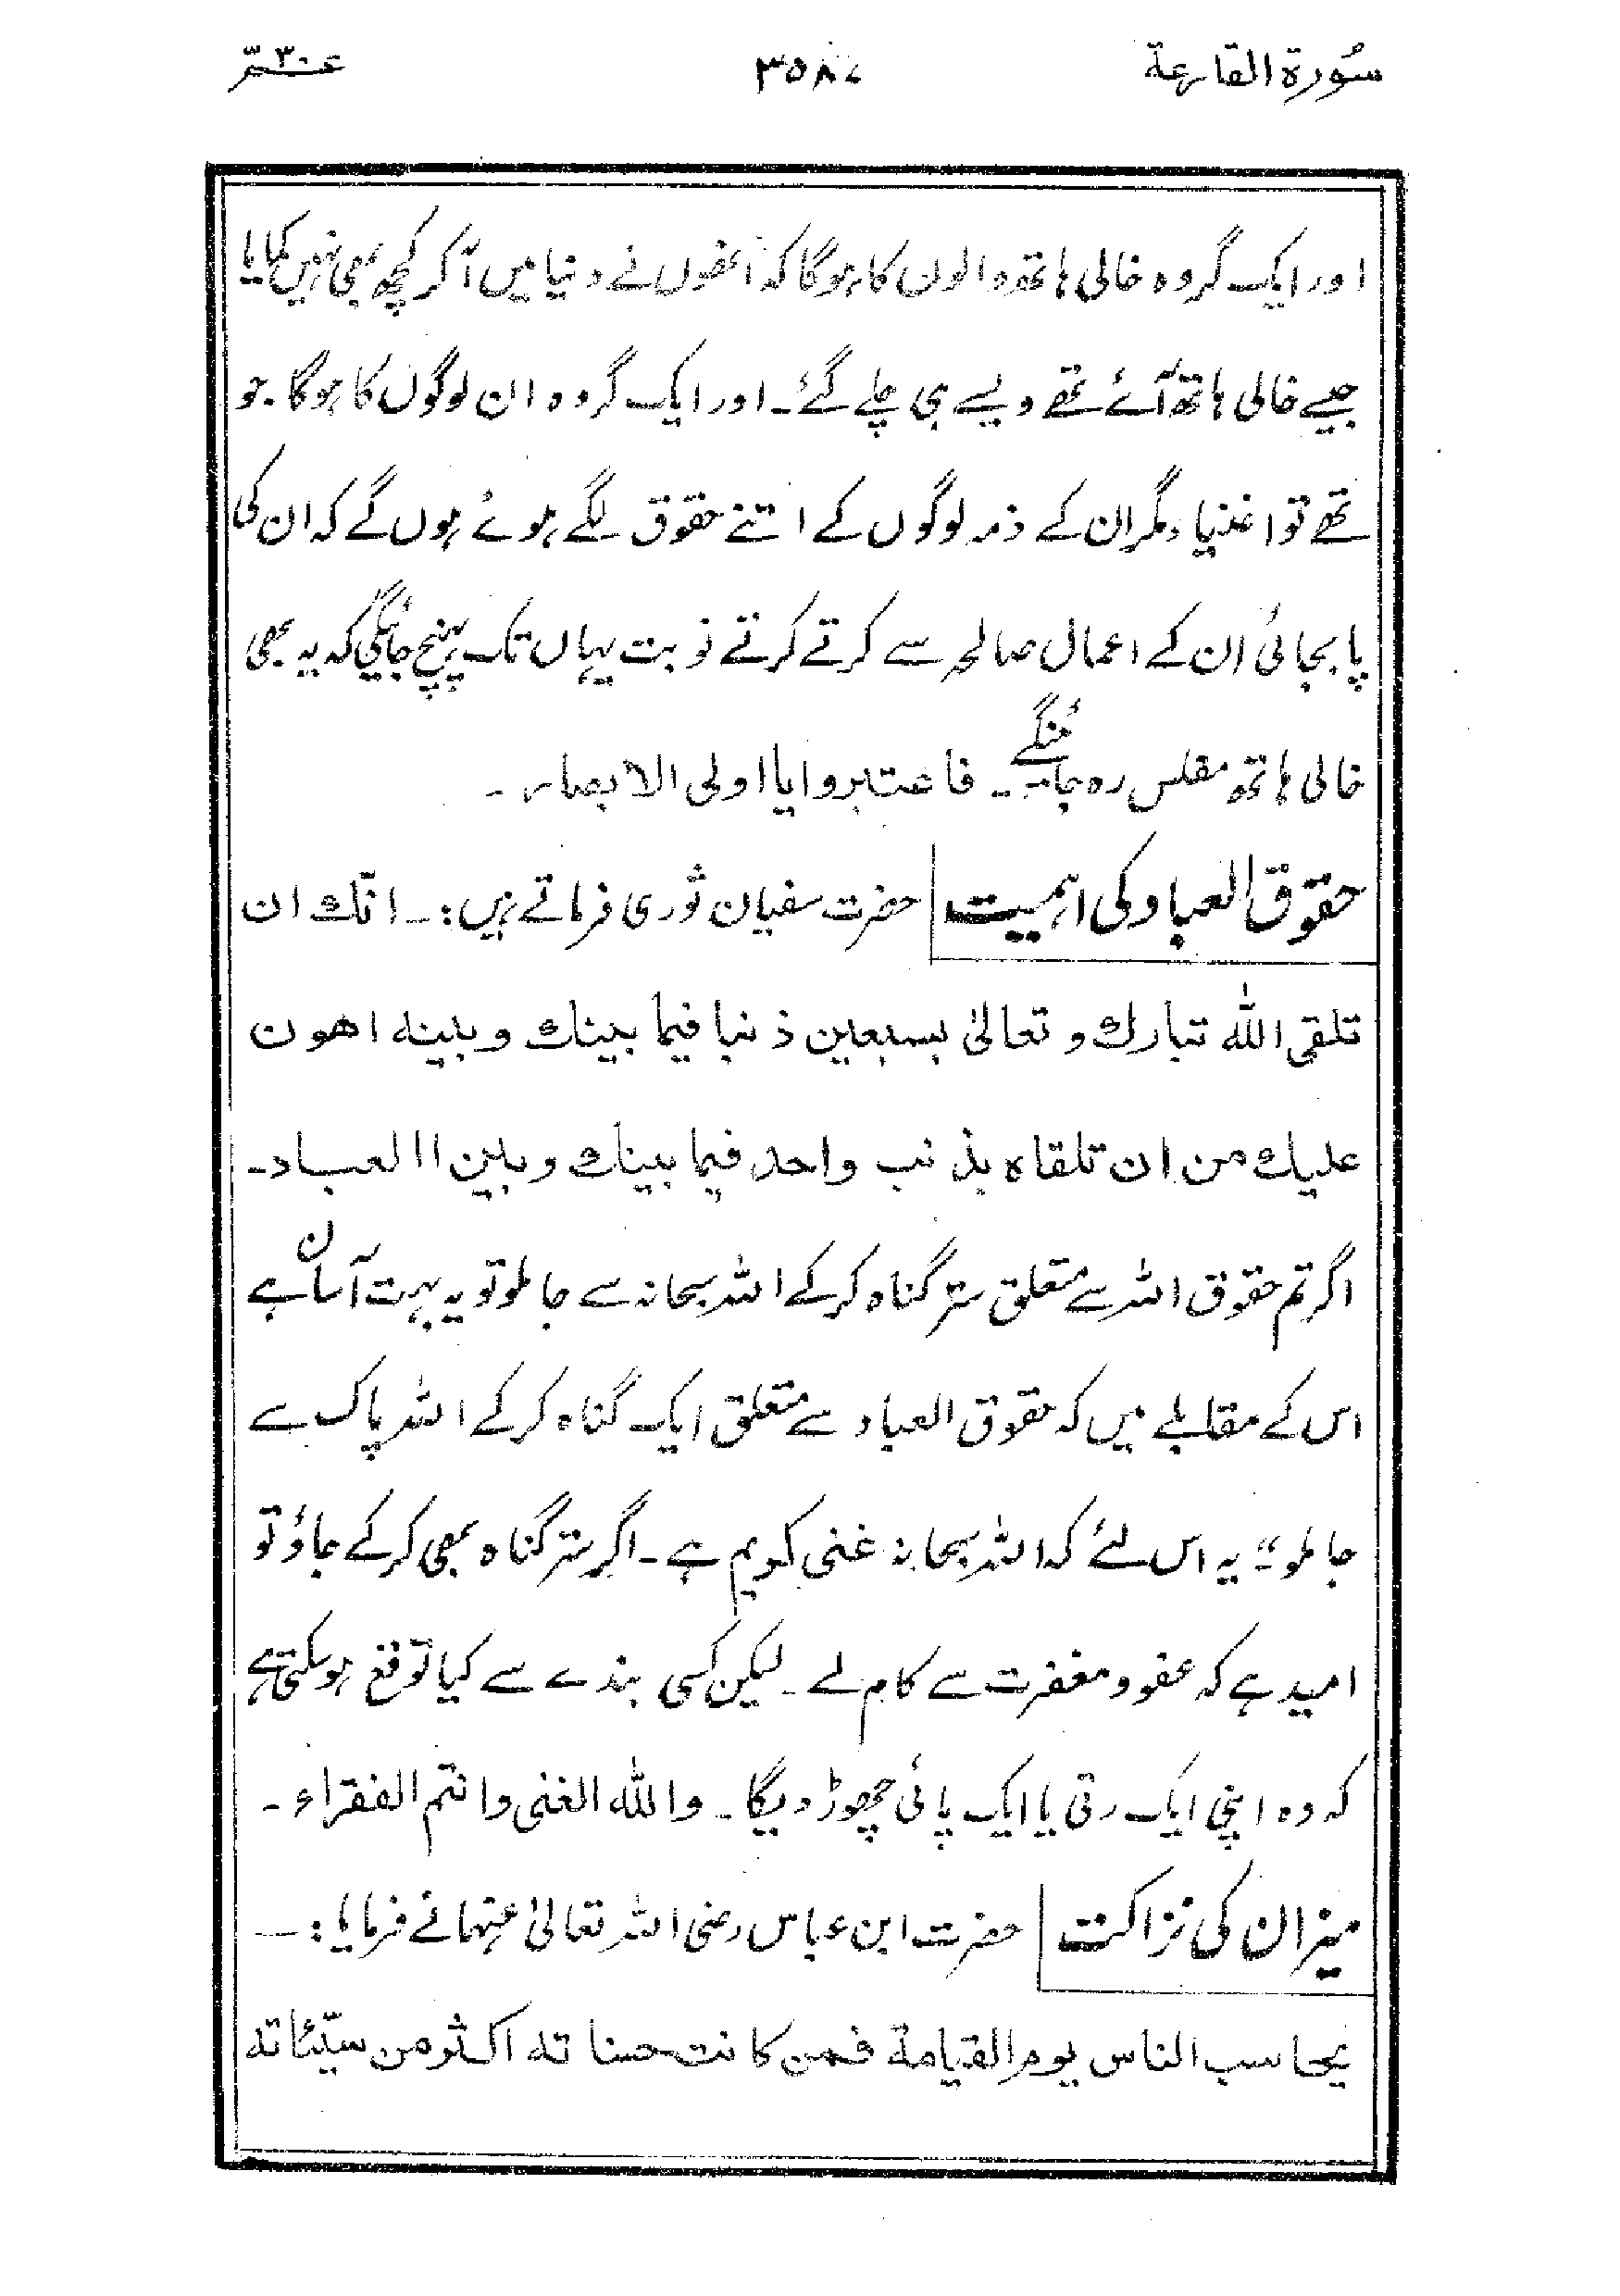 سُورة القارعة ٣٥٨٧ عمّ ٣٠
اور ایک گروہ خالی ہاتھ والوں کا ہوگا کہ انھوں نے دنیا میں آکر کچھ بھی نہیں کمایا
جیسے خالی ہاتھ آئے تھے ویسے ہی چلے گئے۔ اور ایک گروہ ان لوگوں کا ہوگا۔ جو
تھے تو اغنیاء مگر ان کے ذمہ لوگوں کے اتنے حقوق لگے ہوئے ہوں گے کہ ان کی
پابجائی ان کے اعمال صالحہ سے کرتے کرتے نوبت یہاں تک پہنچ جائیگی کہ یہ بھی
خالی ہاتھ مفلس رہ جائینگے۔ فاعتبروا یا اولی الابصار۔
حقوق العباد کی اہمیت حضرت سفیان ثوری فرماتے ہیں:۔ انّك ان
تلقی اللہ تبارك و تعالیٰ بسبعین ذنبا فیما بینك و بینه اهون
علیك من ان تلقاه بذنب واحد فیما بینك و بین االعباد۔
اگر تم حقوق اللہ سے متعلق ستر گناہ کرکے اللہ سبحانہ سے جا ملو تو یہ بہت آسان ہے
اس کے مقابلے میں کہ حقوق العباد سے متعلق ایک گناہ کرکے اللہ پاک سے
جا ملو"۔ یہ اس لئے کہ اللہ سبحانہ غنی کریم ہے۔ اگر ستر گناہ بھی کرکے جاؤ تو
امید ہے کہ عفو و مغفرت سے کام لے۔ لیکن کسی بندے سے کیا توقع ہوسکتی ہے
کہ وہ اپنی ایک رتی یا ایک پائی چھوڑ دیگا۔ واللہ الغنی وانتم الفقراء۔
میزان کی نزاکت حضرت ابن عباس رضی اللہ تعالیٰ عنہما نے فرمایا:۔
یحاسب الناس یوم القیامة فمن کانت حسناته اکثر من سیّئاته